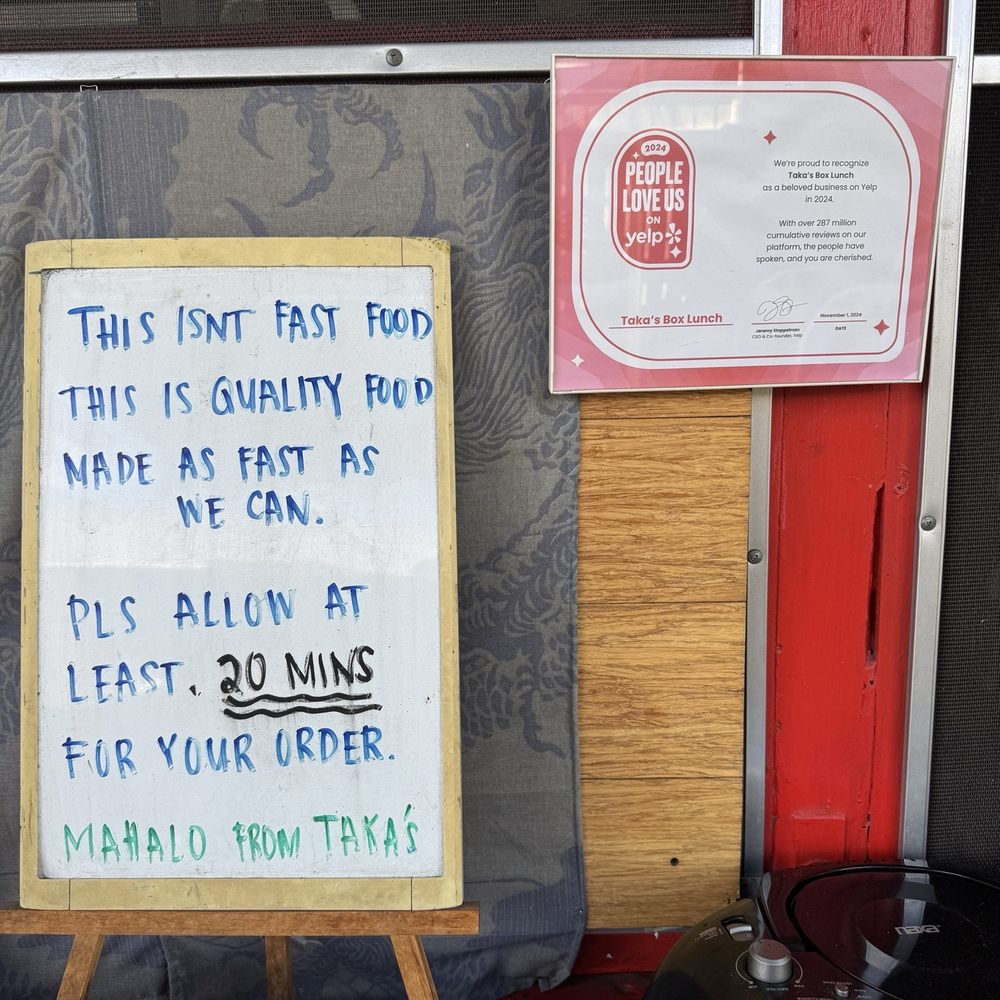 THIS ISNT FAST FOOD
THIS IS QUALITY FOOD
MADE AS FAST AS
WE CAN.
PLS ALLOW AT
LEAST. 20 MINS
FOR YOUR ORDER.
MAHALO FROM TAKA'S
2024
PEOPLE
LOVE US
ON
yelp
We're proud to recognize
Taka's Box Lunch
as a beloved business on Yelp
in 2024.
With over 287 million
cumulative reviews on our
platform, the people have
spoken, and you are cherished.
Taka's Box Lunch
Jeremy Stoppelman
CEO & Co-founder, Yelp
November 1, 2024
DATE
naxa
VOLUME